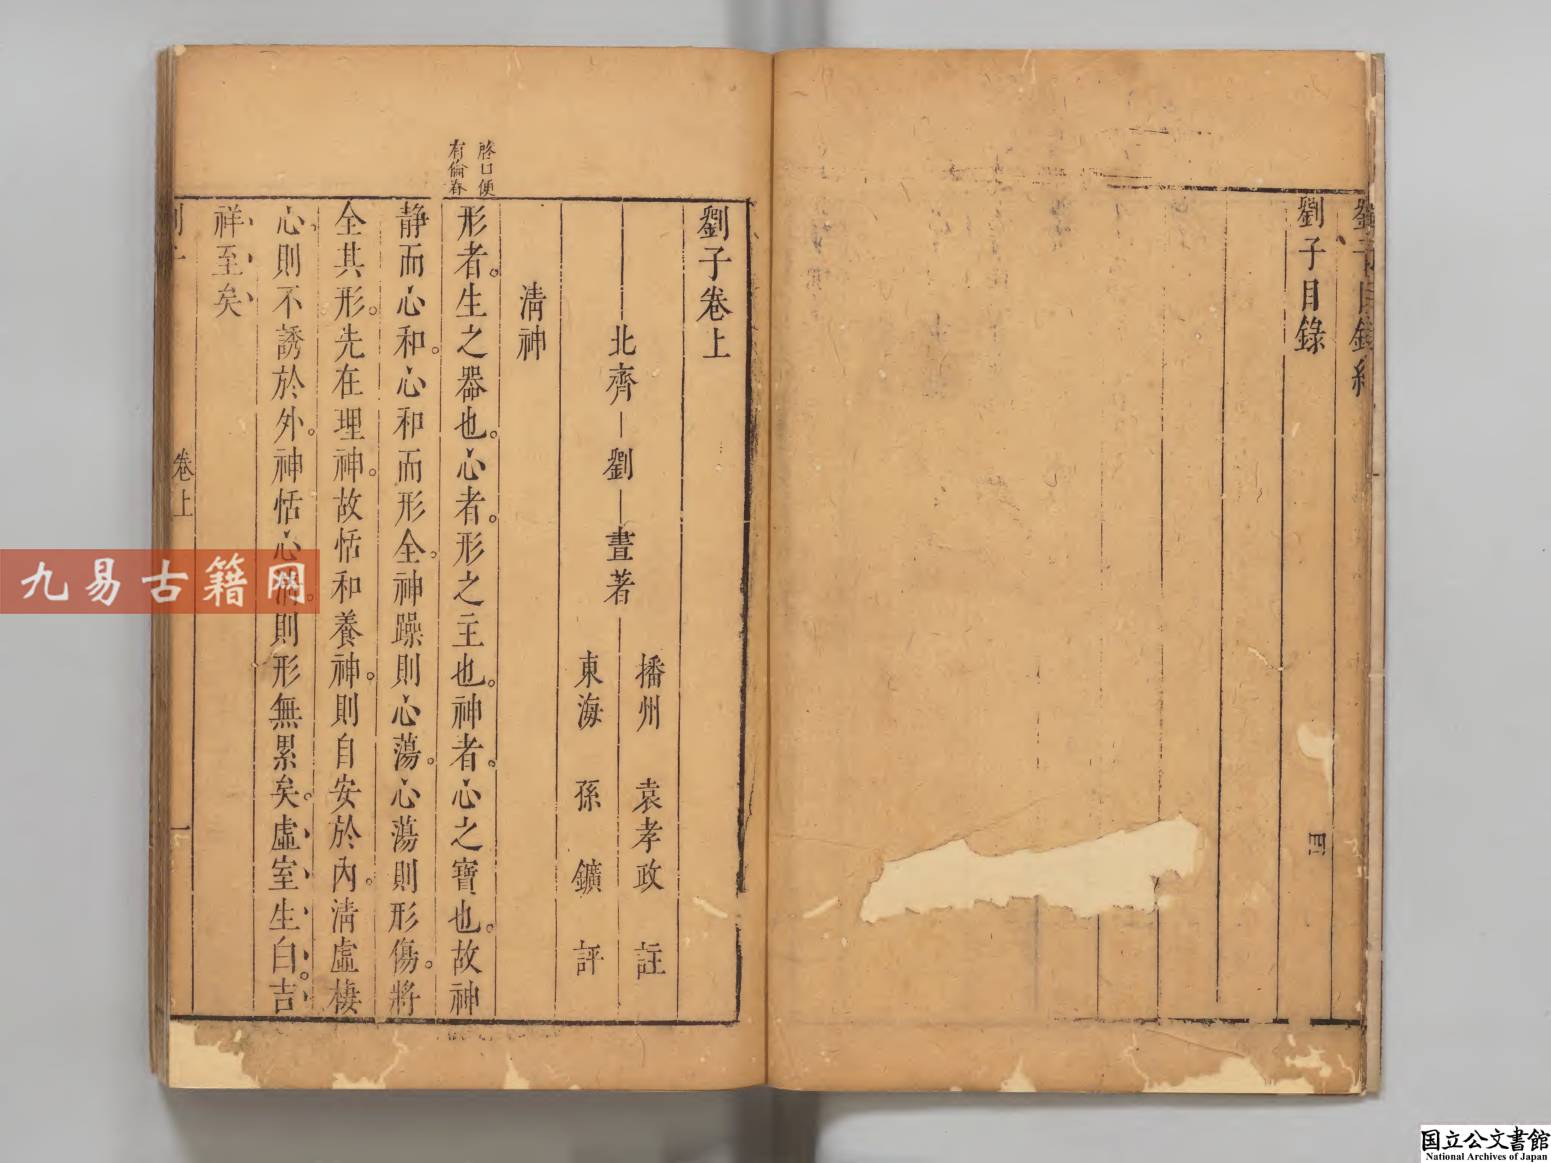 劉子目錄終
劉子目錄
四
劉子卷上
北齊劉晝著
播州 袁孝政 註
東海 孫鑛 評
清神
啓口便
有倫春
形者。生之器也。心者。形之主也。神者。心之寶也。故神
靜而心和。心和而形全。神躁則心蕩。心蕩則形傷。將
全其形。先在理神。故恬和養神。則自安於內。清虛棲
心。則不誘於外。神恬心清。則形無累矣。虛室生白。吉
祥至矣
卷上
一
九易古籍网
国立公文書館
National Archives of Japan